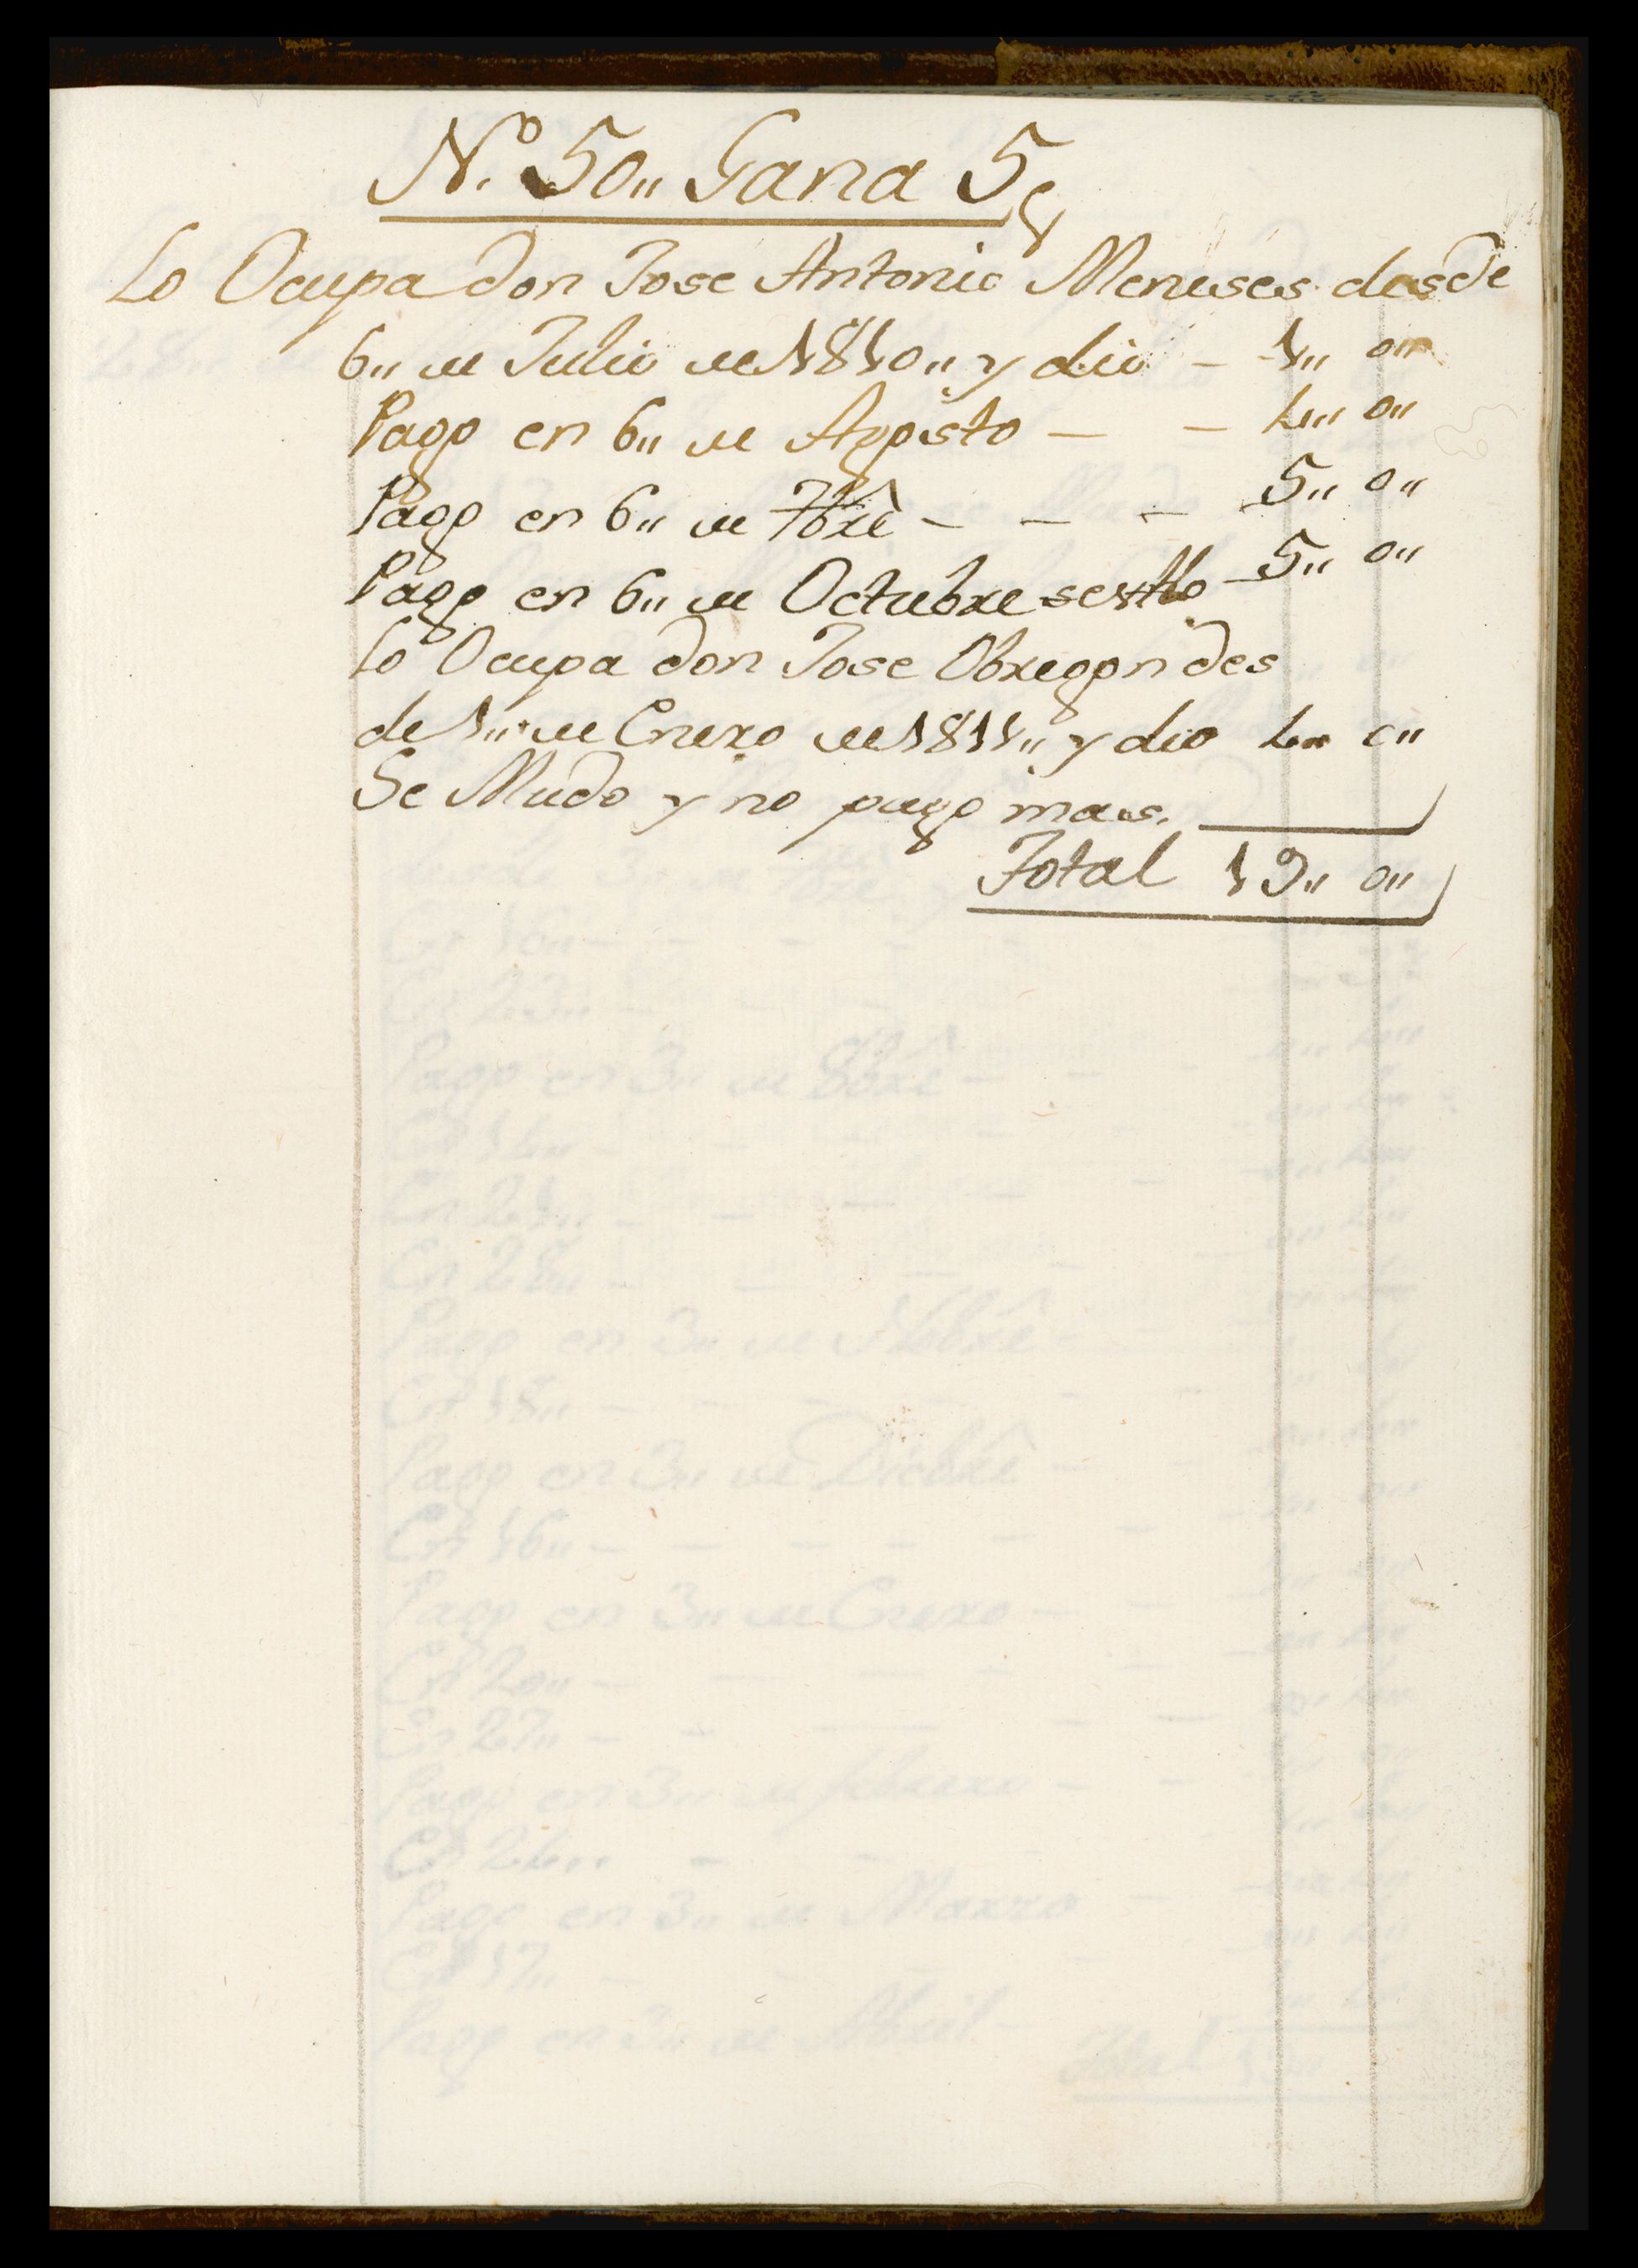 Nº. 50,, Gana 5
Lo Ocupa don Jose Antonio Meneses desde
6,, de Julio de 1810,, y dio - 1,, 0,,
Pago en 6,, de Agosto — — 4,, 0,,
Pago en 6,, de 7bre — — — 5,, 0,,
Pago en 6,, de Octubre 5,, 0,,
Lo Ocupa don Jose Obregon des
de 1,, de Enero de 1811,, y dio 4,, 0,,
Se Mudo y no pago mas.
Total 19,, 0,,